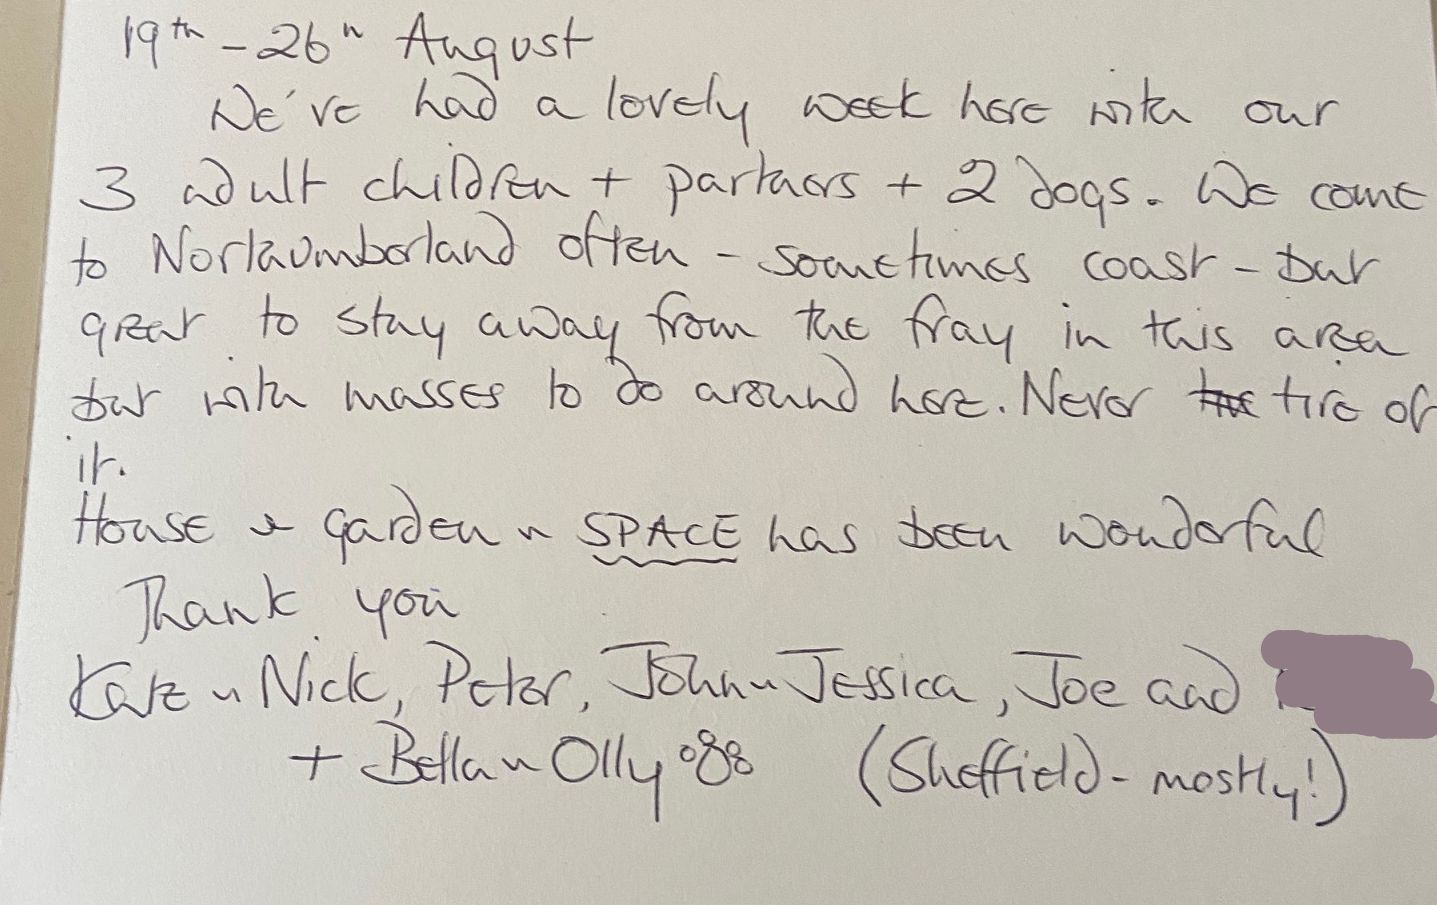 19th - 26th August
We've had a lovely week here with our
3 adult children + partners + 2 dogs. We come
to Northumberland often - sometimes coast - but
great to stay away from the fray in this area
but with masses to do around here. Never the tire of
it.
House & garden n SPACE has been wonderful
Thank you
Kate n Nick, Peter, John n Jessica, Joe and
+ Bella n Olly (Sheffield - mostly!)